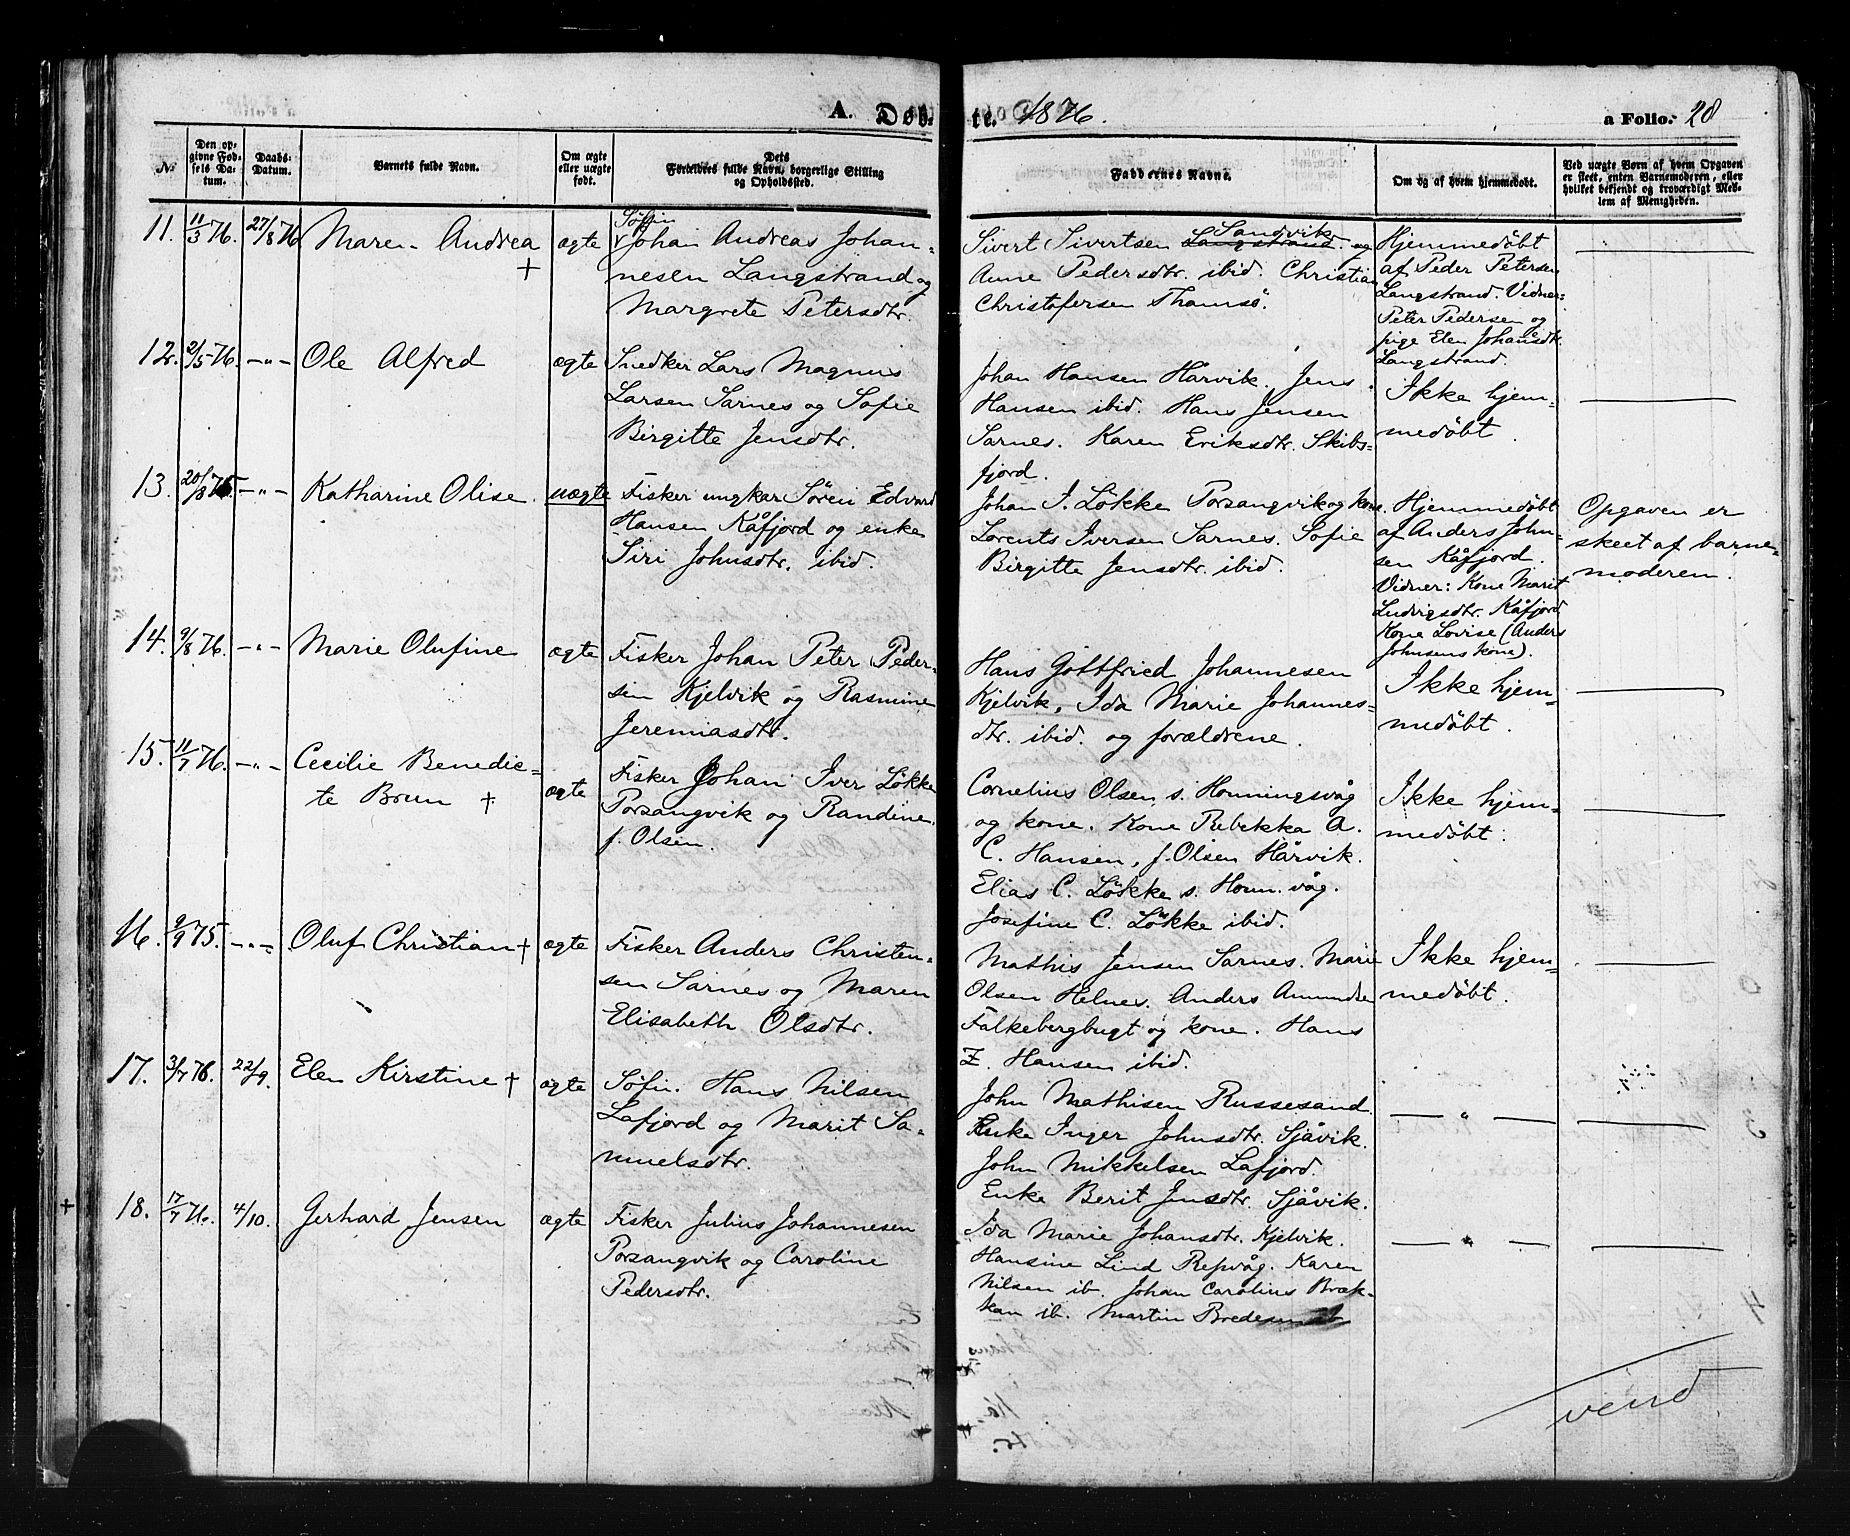 A. Døb- te. 1876. a Folio. 28
No
Den op-
givne Fød-
sels Da-
tum.
Daabs-
Datum.
Barnets fulde Navn.
Om ægte
eller uægte
født.
Dets
Forældres fulde Navn, borgerlige Stilling
og Opholdssted.
Faddernes Navne.
Om og af hvem hjemmedøbt.
Ved uægte Børn af hvem Opgaven
er skeet, enten Barnemoderen, eller
hvilket bekjendt og troværdigt Med-
lem af Menigheden.
11. 11/3 76. 27/8 76 Maren Andrea + ægte
Søfin
Johan Andreas Johan-
nesen Langstrand og
Margrete Petersdtr.
Sandvik
Sivert Sivertsen Langstrand og
Anne Pedersdtr. ibid. Christian
Christofersen Thamsö.
Hjemmedöbt
af Peder Petersen
Langstrand. Vidner:
Peter Pedersen og
pige Elen Johansdtr.
Langstrand.
12. 2/5 76. -"- Ole Alfred ægte
Snedker Lars Magnus
Larsen Sarnes og Sofie
Birgitte Jensdtr.
Johan Hansen Hårvik. Jens
Hansen ibid. Hans Jensen
Sarnes. Karen Eriksdtr. Skibs-
fjord.
Ikke hjem-
medöbt.
13. 20/8 75. -"- Katharine Olise. uægte
Fisker ungkar Sören Edvard
Hansen Kåfjord og enke
Siri Johnsdtr. ibid.
Johan I. Lökke Porsangvik og kone.
Lorents Iversen Sarnes. Sofie
Birgitte Jensdtr. ibid.
Hjemmedöbt
af Anders John-
sen Kåfjord.
Vidner: Kone Marit
Ludvigsdtr. Kåfjord
Kone Lovise (Anders
Johnsens kone).
Opgaven er
skeet af barne-
moderen.
14. 9/8 76. -"- Marie Olufine ægte
Fisker Johan Peter Peder-
sen Kjelvik og Rasmine
Jeremiasdtr.
Hans Gottfried Johannesen
Kjelvik, Ida Marie Johannes-
dtr. ibid. og forældrene.
Ikke hjem-
medöbt.
15. 11/7 76. -"- Cecilie Benedic-
te Brun + ægte
Fisker Johan Iver Lökke
Porsangvik og Randine
f. Olsen.
Cornelius Olsen s. Honningsvåg
og kone. Kone Rebekka A.
C. Hansen, f. Olsen Hårvik.
Elias C. Lökke s. Honn. våg.
Josefine C. Lökke ibid.
Ikke hjem-
medöbt.
16. 9/9 75. -"- Oluf Christian + ægte
Fisker Anders Christen-
sen Sarnes og Maren
Elisabeth Olsdtr.
Mathis Jensen Sarnes. Marie
Olsen Helnes. Anders Amundsen
Falkebergbugt og kone. Hans
Z. Hansen ibid.
Ikke hjem-
medöbt.
17. 3/7 76. 22/9. Elen Kirstine + ægte
Søfin. Hans Nilsen
Lafjord og Marit Sa-
muelsdtr.
John Mathisen Russesand.
Enke Inger Johnsdtr. Sjåvik.
John Mikkelsen Lafjord.
Enke Berit Jensdtr. Sjåvik.
- " -
18. 17/7 76. 4/10. Gerhard Jensen ægte
Fisker Julius Johannesen
Porsangvik og Caroline
Pedersdtr.
Ida Marie Johansdtr. Kjelvik.
Hansine Lind Repvåg. Karen
Nilsen ib. Johan Carolius Bræk-
kan ib. Martin Bredesen ib
- " -
vend